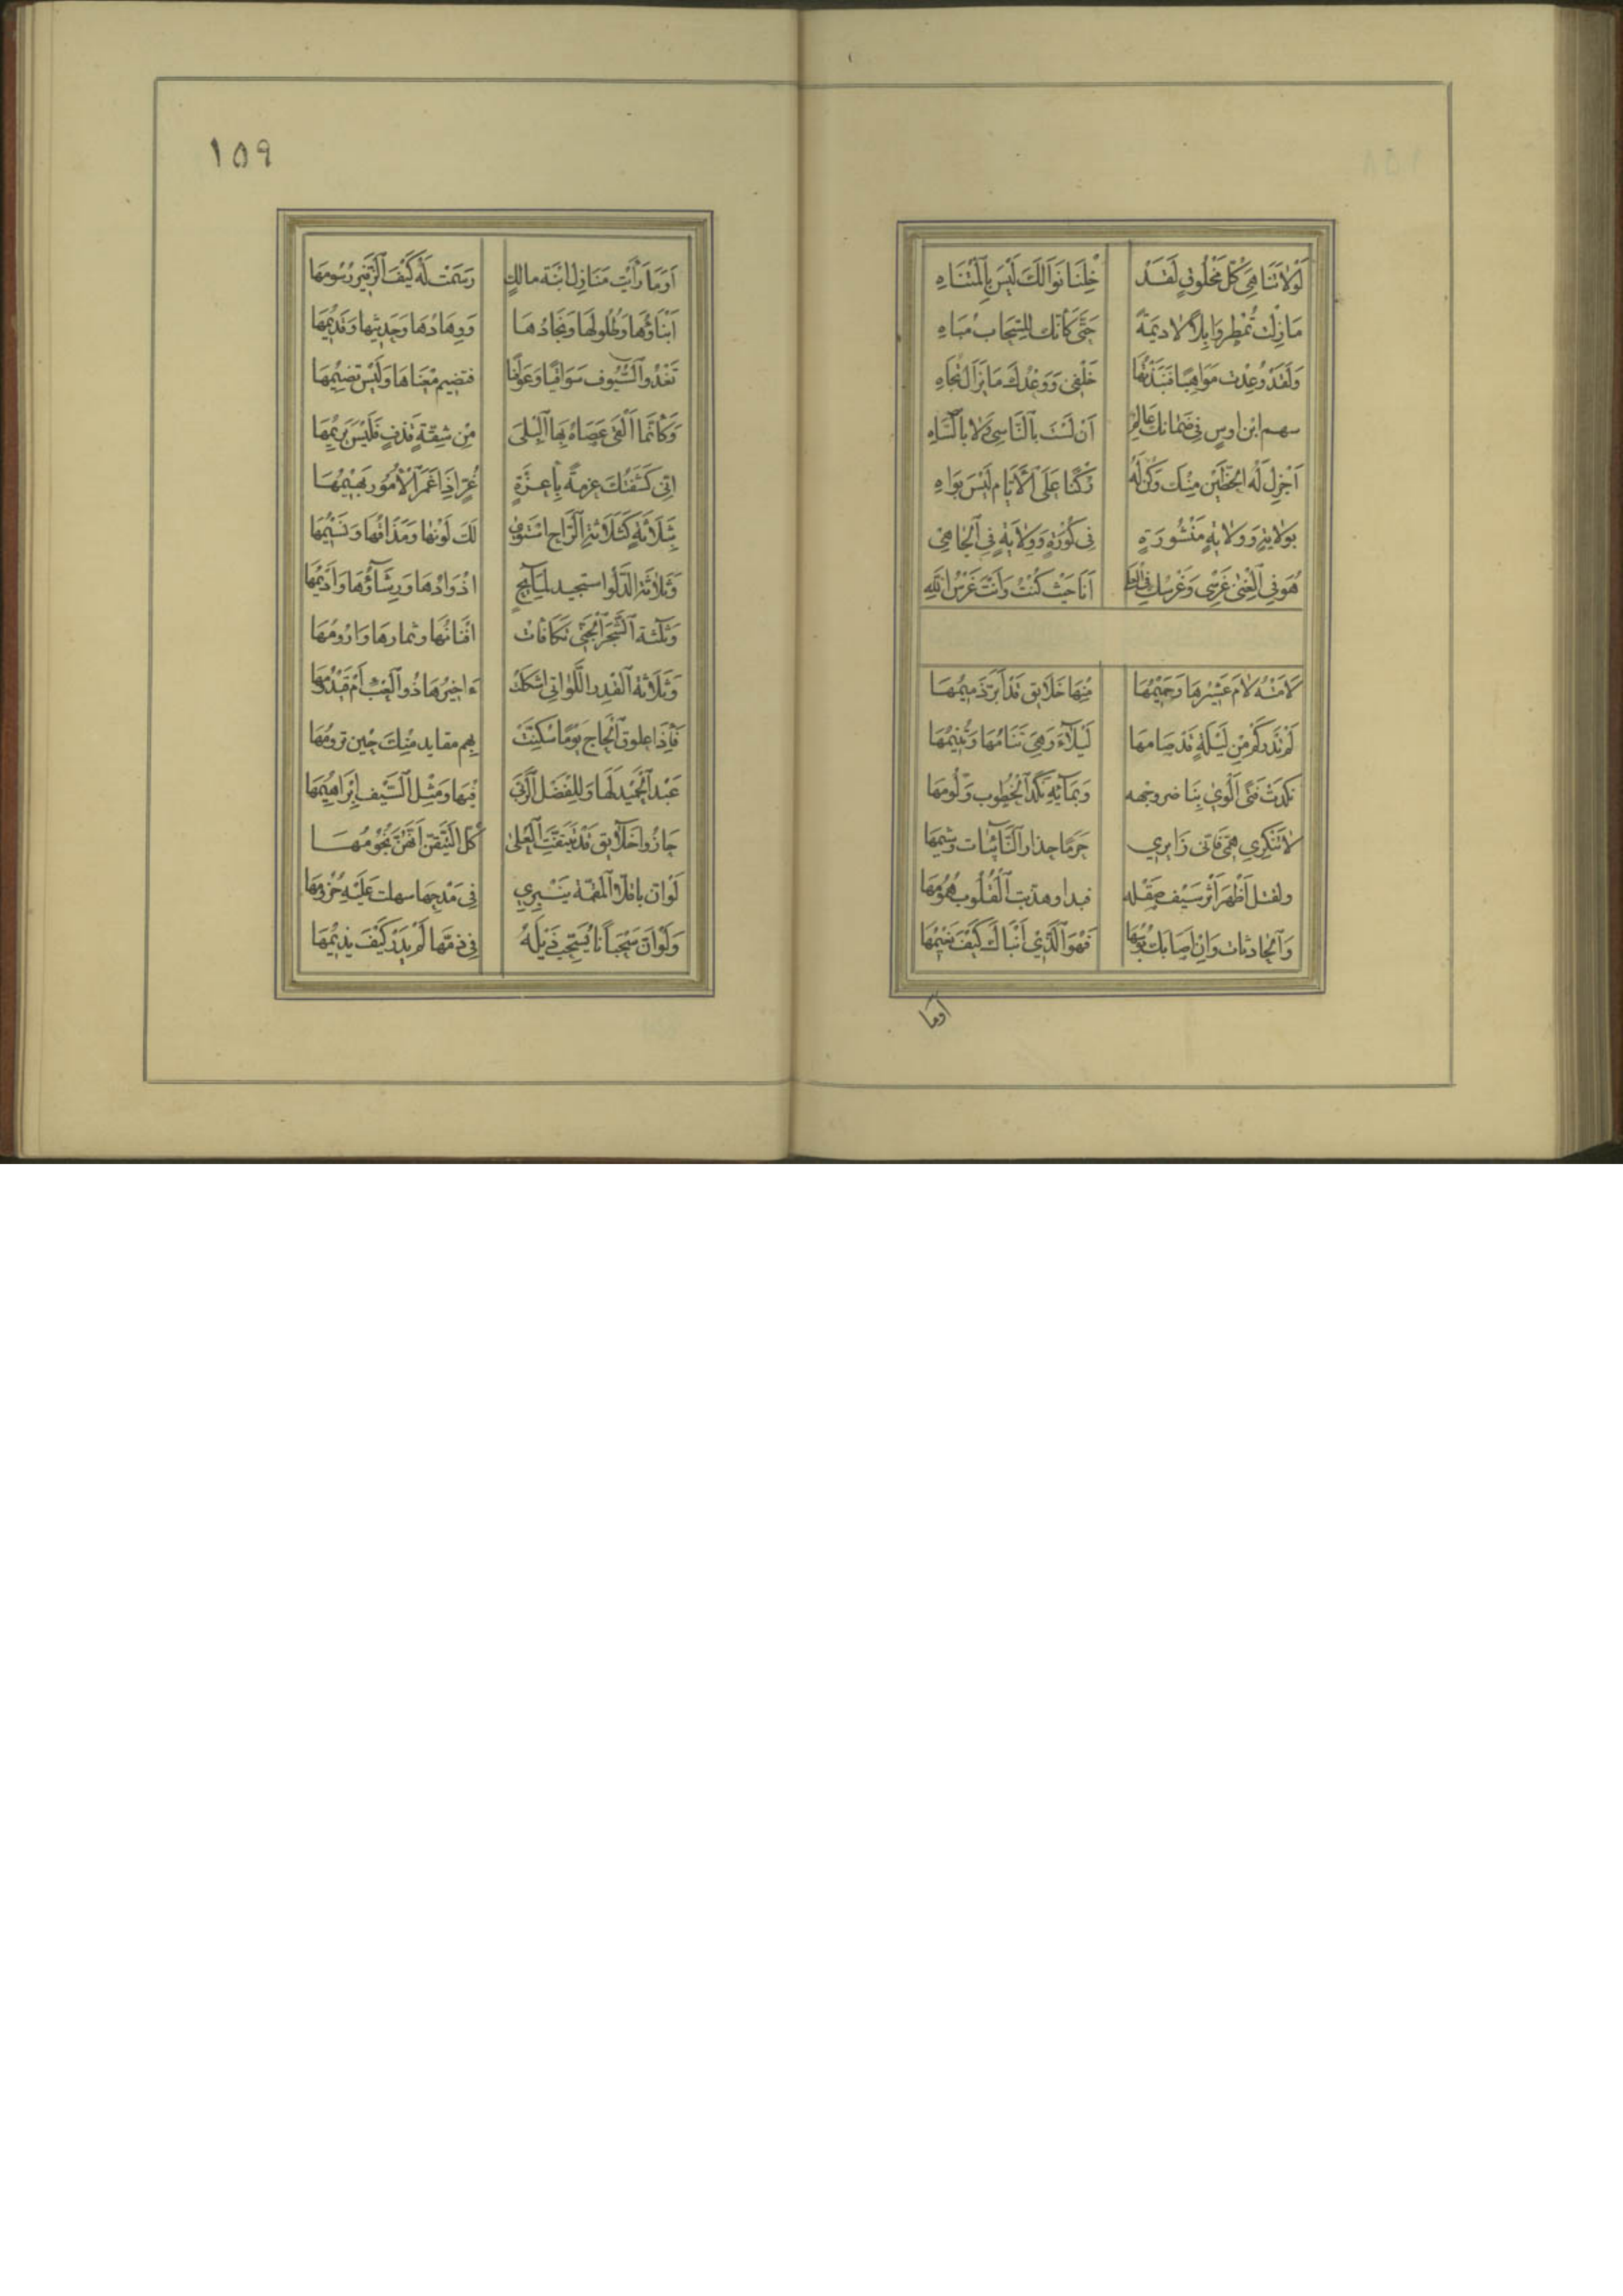 لَوْلَا تَنَاهِى كُلِّ مَخْلُوقٍ لَقَدْ خِلْنَا نَوَالَكَ لَيْسَ بِالْمُتَنَاهِ
مَازِلْتَ تُمْطِرُ وَابِلًا لَا دِيمَةً حَتَّى كَأَنَّكَ لِلسَّحَابِ مُبَاهِ
وَلَقَدْ وُعِدْتُ مَوَاهِبًا فَنَبَذْتُهَا خَلْفِى وَوَعْدُكَ مَا يَزَالُ تُجَاهِ
سهم ابن اوسٍ فِى ضَمَانِكَ عَالِمٌ اَنْ لَسْتَ بِالنَّاسِى وَلَا بِالسَّاهِ
اَجْزِلْ لَهُ الْحَظَّيْنِ مِنْكَ وَكُنْ لَهُ رُكْنًا عَلَى الْأَيَّامِ لَيْسَ بِوَاهِ
بِوِلَايَةٍ وَوِلَايَةٍ مَنْشُورَةٍ فِى كُورَةٍ وَوِلَايَةٍ فِى الْجَاهِى
هُوَ فِى الْغِنَى غَرْسِى وَغَرْسُكَ فِى الْعُلَى اَنَا حَيْثُ كُنْتُ وَأَنْتَ غَرْسُ اللّٰهِ
لَامَتْهُ لَامَ عَشِيرُهَا وَحَمِيمُهَا مِنْهَا خَلَايِق قَدْ أَبَرَّ ذَمِيمُهَا
لَمْ تَدْرِ كَمْ مِنْ لَيْلَةٍ قَدْ صَامَهَا لَيْلَاءَ وَهِىَ تَنَامُهَا وَتُنِيمُهَا
نَكِدَتْ فَتًى اَلْوَى بِنَاضِر وجهه وَبِمَائِهِ نَكَدُ الْخُطُوبِ وَلُومُهَا
لَا تُنْكِرِى هَمِّى فَانّى زَايِرِى جَرِمًا حِذَار النَّائِبَات وَشِيمُهَا
ولقبل أَظْهَرَ أَثْرَ سَيْف صَقْله فبدا وهذبت الْقُلُوبَ هُمُومُهَا
وَالْحَادِثَات وَاِنْ اَصَابَكَ بُؤْسُهَا فَهْوَ الَّذِى اَنْبَاكَ كَيْفَ نَعِيمُهَا
اوما
١٥٩
اَوَمَا رَأَيْتَ مَنَازِلَ ابْنَةِ مالِكٍ رَسَمَتْ لَهُ كَيْفَ الزَّفِيرُ رُسُومُهَا
اَنَآؤُهَا وَطُلُولُهَا وَنِجَادُهَا وَوِهَادُهَا وَحَدِيثُهَا وَقَدِيمُهَا
تَغْدُو السُّيُوف سَوَافِيًا وَعَوَافِيًا فتضيم مَغْنَاهَا وَلَيْسَ تضِيمُهَا
وَكَأَنَّمَا اَلْقَى عَصَاهُ بِهَا الْبِلَى مِنْ شِقّةٍ قَذَفٍ فَلَيْسَ يَرِيمُهَا
انّى كَشَفْتُكَ عزمةً بِأَعِزَّةٍ غُرٍّ اِذَا غَمَرَ الْأُمُورَ بَهِيمُهَا
بِثَلَاثَةٍ كَثَلَاثَةِ الرَّاحِ اسْتَوى لَكَ لَوْنُهَا وَمَذَاقُهَا وَنَسِيمُهَا
وَثَلَاثَةِ الدَّلْوِ استجيد لِمَايِحٍ اذْوَادُهَا وَرِشَاؤُهَا وَأَدِيمُهَا
وَثَلٰثَةِ الشَّجَرِ الْجَنِىّ تَكَافَأتْ افْنَانُهَا وثمارهَا وَارُومُهَا
وَثَلَاثَةِ الْقِدْرِ اللَّوَاتِى اَشْكَلَتْ ءَاَخِيرُهَا ذُو الْعِبْءِ اَمْ قَيْدُومُهَا
فَإِذَا علوق الْحَاجِ يَوْمًا سُكِّنَتْ بِهِم مقايد مِنْكَ حِينَ ترومُهَا
عَبْدُ الْحَمِيدِ لَهَا وَلِلْفَضْلِ الرُّبَى فِيهَا وَمِثْلُ السَّيْفِ اِبْرَاهِيمُهَا
حَازُوا خَلَائِق قَدْ تَيَقَّنَتِ الْعُلَى كُلَّ التَّيَقُّنِ اَنَّهُنَّ نُجُومُهَا
لَوْ اَنَّ باقل الْمفهّة يَنْبَرِى فِى مَدْحِهَا سهلت عَلَيْهِ حُزُومُهَا
وَلَوْ اَنَّ سَحْبَانًا يُسَحِّب ذَيْلَهُ فِى ذَمِّهَا لَمْ يَدْرِ كَيْفَ يذِيمُهَا